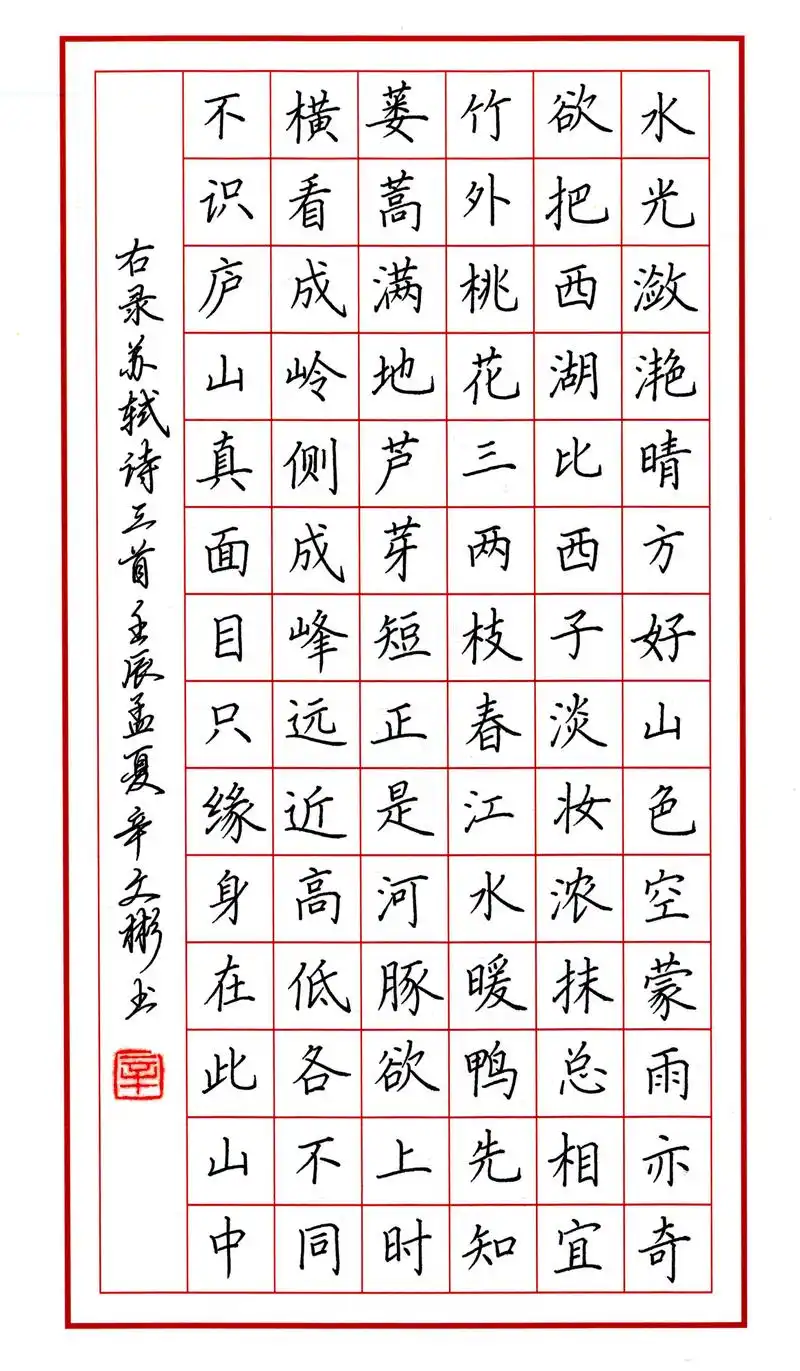 水光潋滟晴方好山色空蒙雨亦奇
欲把西湖比西子淡妆浓抹总相宜
竹外桃花三两枝春江水暖鸭先知
蒌蒿满地芦芽短正是河豚欲上时
横看成岭侧成峰远近高低各不同
不识庐山真面目只缘身在此山中
右录苏轼诗三首壬辰孟夏辛文彬书
辛